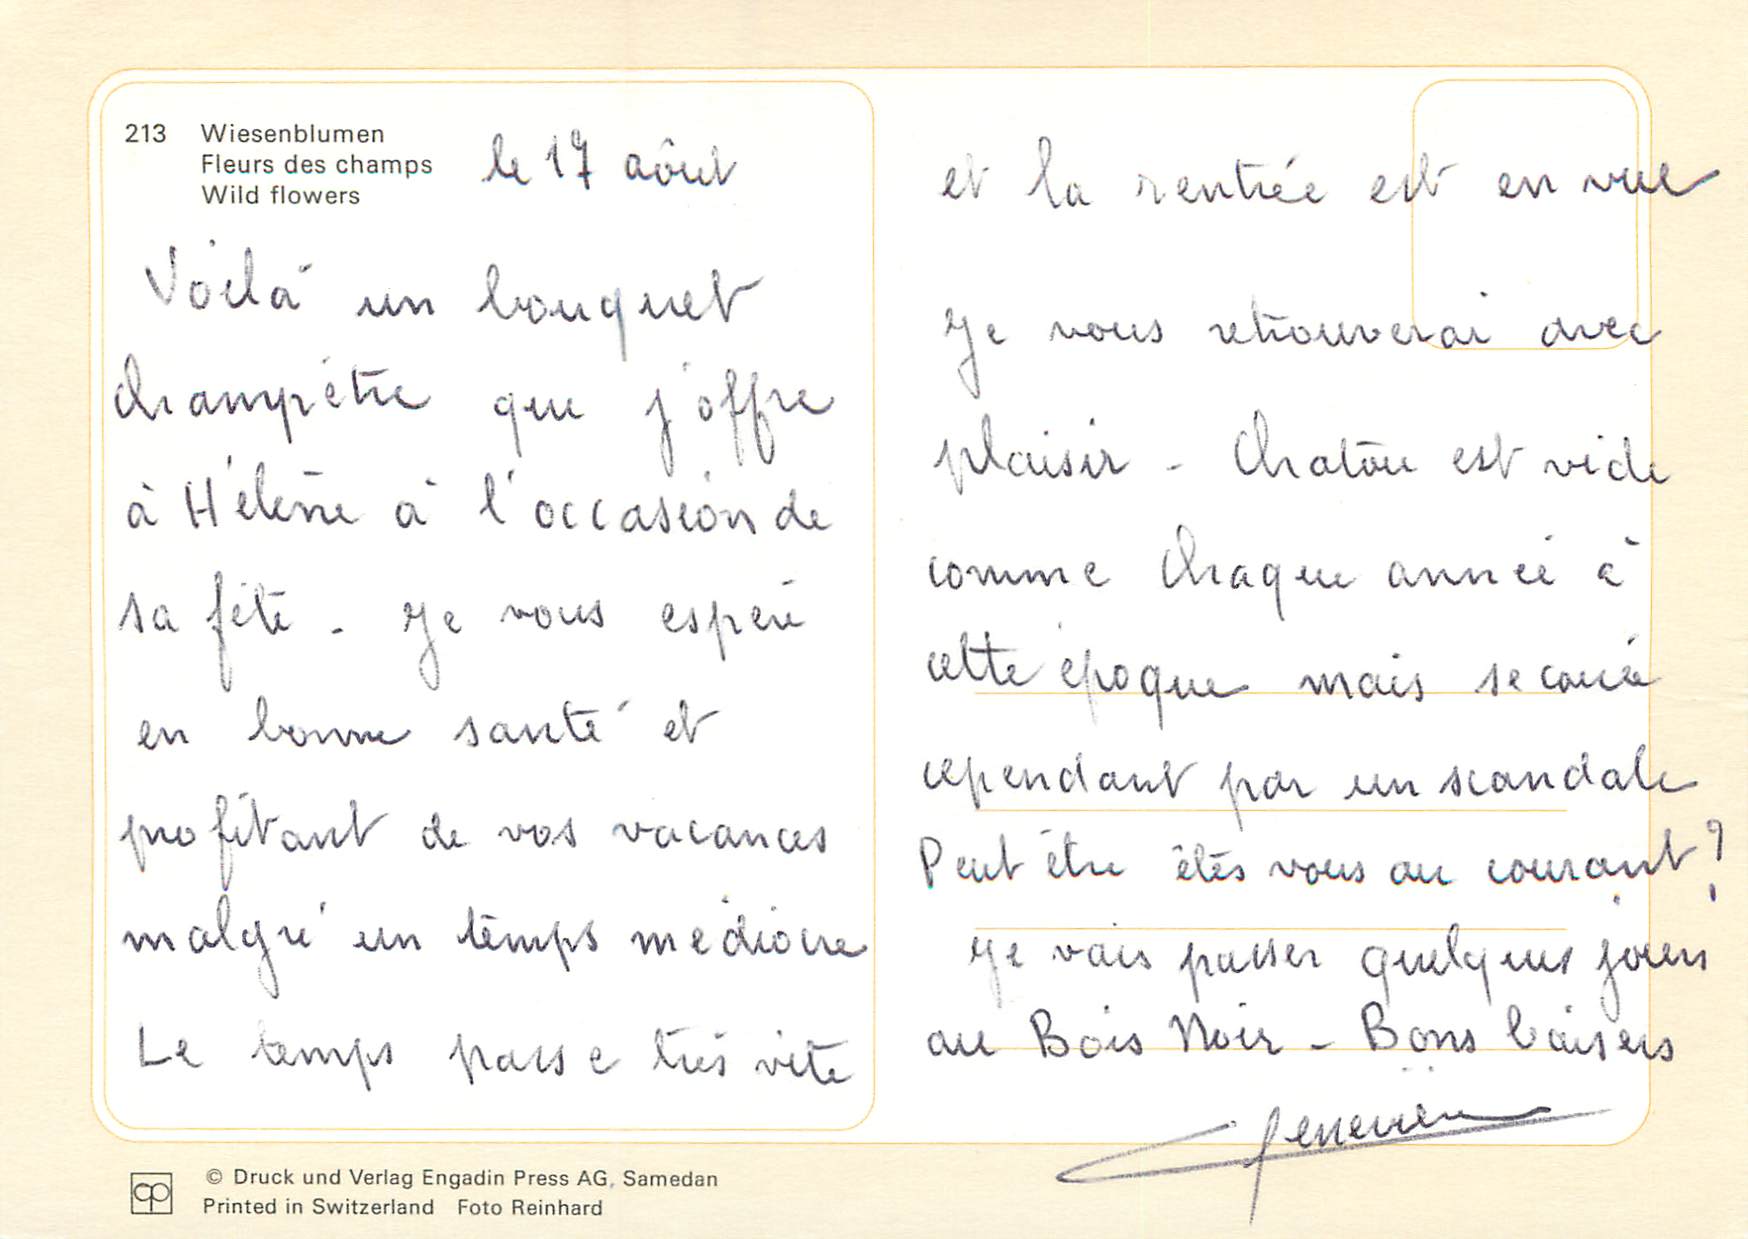 213 Wiesenblumen
Fleurs des champs
Wild flowers
le 17 août
Voilà un bouquet
champêtre que j'offre
à Hélène à l'occasion de
sa fête - Je vous espère
en bonne santé et
profitant de vos vacances
malgré un temps médiocre
Le temps passe très vite
et la rentrée est en vue
Je vous retrouverai avec
plaisir - Chatou est vide
comme chaque année à
cette époque mais secouée
cependant par un scandale
Peut être êtes vous au courant ?
Je vais passer quelques jours
au Bois Noir - Bons baisers
Geneviève
© Druck und Verlag Engadin Press AG, Samedan
Printed in Switzerland Foto Reinhard